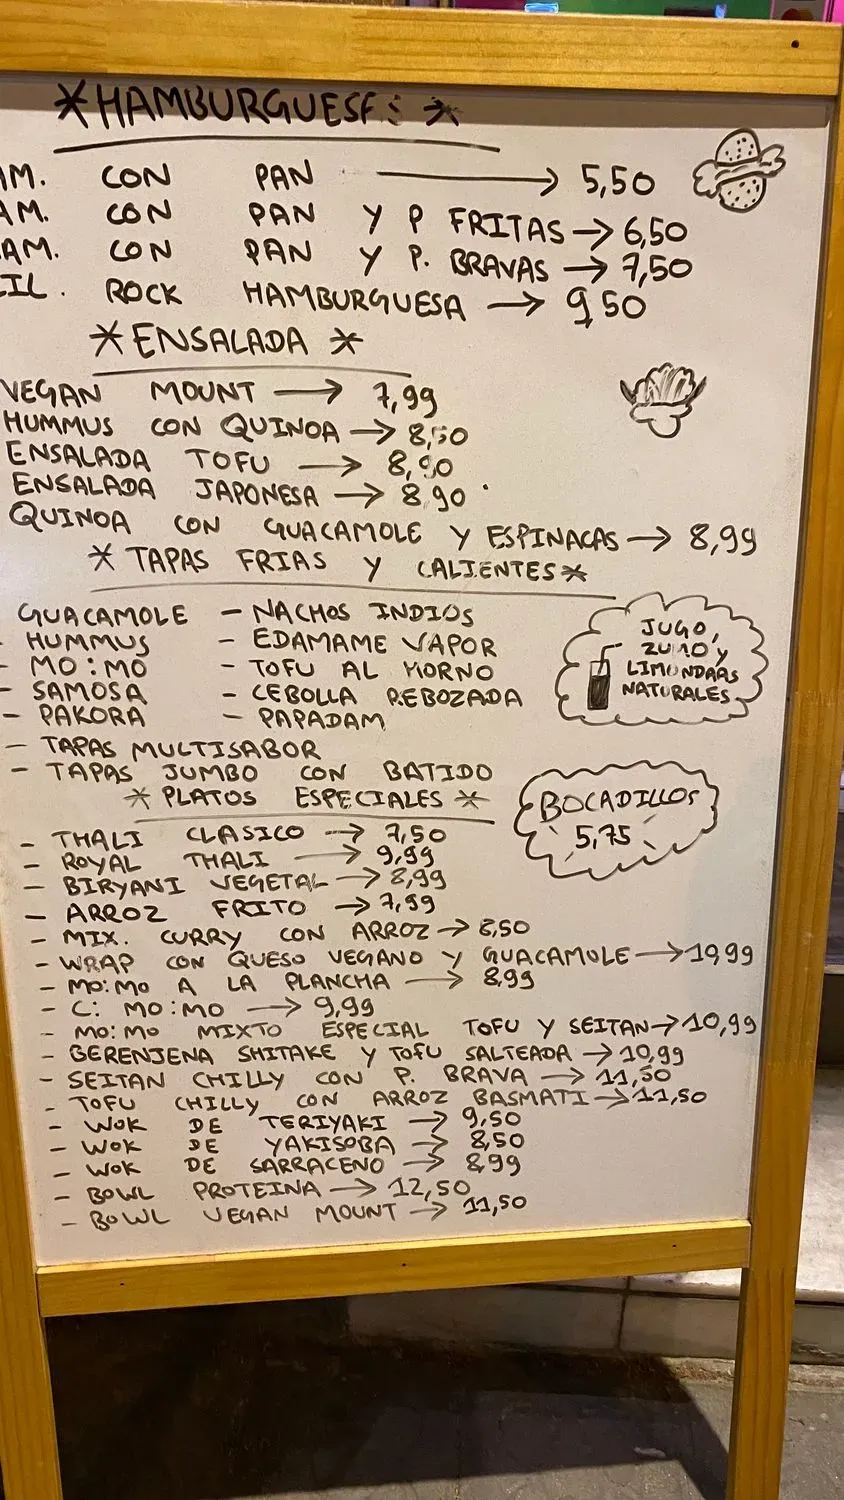 *HAMBURGUESES *
AM. CON PAN → 5,50
AM. CON PAN Y P FRITAS → 6,50
AM. CON PAN Y P. BRAVAS → 7,50
IL. ROCK HAMBURGUESA → 9,50
*ENSALADA *
VEGAN MOUNT → 7,99
HUMMUS CON QUINOA → 8,50
ENSALADA TOFU → 8,90
ENSALADA JAPONESA → 8,90
QUINOA CON GUACAMOLE Y ESPINACAS → 8,99
* TAPAS FRIAS Y CALIENTES *
GUACAMOLE - NACHOS INDIOS
- HUMMUS - EDAMAME VAPOR
- MO:MO - TOFU AL HORNO
- SAMOSA - CEBOLLA REBOZADA
- PAKORA - PAPADAM
- TAPAS MULTISABOR
- TAPAS JUMBO CON BATIDO
JUGO,
ZUMO Y
LIMONDARS
NATURALES
* PLATOS ESPECIALES *
BOCADILLOS
5,75
- THALI CLASICO → 7,50
- ROYAL THALI → 9,99
- BIRYANI VEGETAL → 8,99
- ARROZ FRITO → 7,99
- MIX. CURRY CON ARROZ → 8,50
- WRAP CON QUESO VEGANO Y GUACAMOLE → 10,99
- MO:MO A LA PLANCHA → 8,99
- C: MO:MO → 9,99
- MO:MO MIXTO ESPECIAL TOFU Y SEITAN → 10,99
- BERENJENA SHITAKE Y TOFU SALTEADA → 10,99
- SEITAN CHILLY CON P. BRAVA → 11,50
- TOFU CHILLY CON ARROZ BASMATI → 11,50
- WOK DE TERIYAKI → 9,50
- WOK DE YAKISOBA → 8,50
- WOK DE SARRACENO → 8,99
- BOWL PROTEINA → 12,50
- BOWL VEGAN MOUNT → 11,50